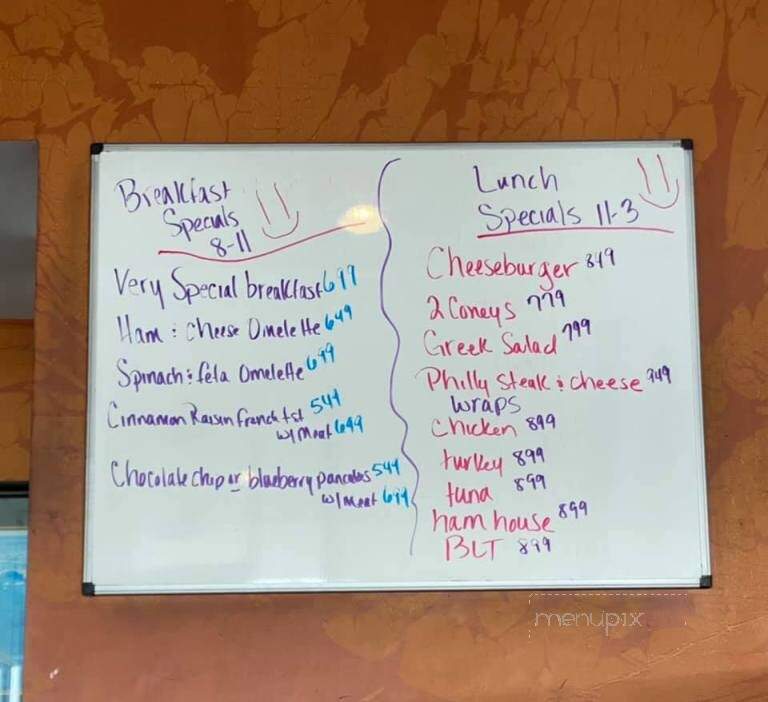 Breakfast
Specials
8-11
Very Special breakfast 699
Ham & cheese Omelette 649
Spinach & feta Omelette 699
Cinnamon Raisin french tst 549
w/ Meat 699
Chocolate chip or blueberry pancakes 549
w/ meat 699
Lunch
Specials 11-3
Cheeseburger 849
2 Coneys 779
Greek Salad 799
Philly Steak & cheese 949
wraps
Chicken 899
turkey 899
tuna 899
ham house 899
BLT 899
menupix